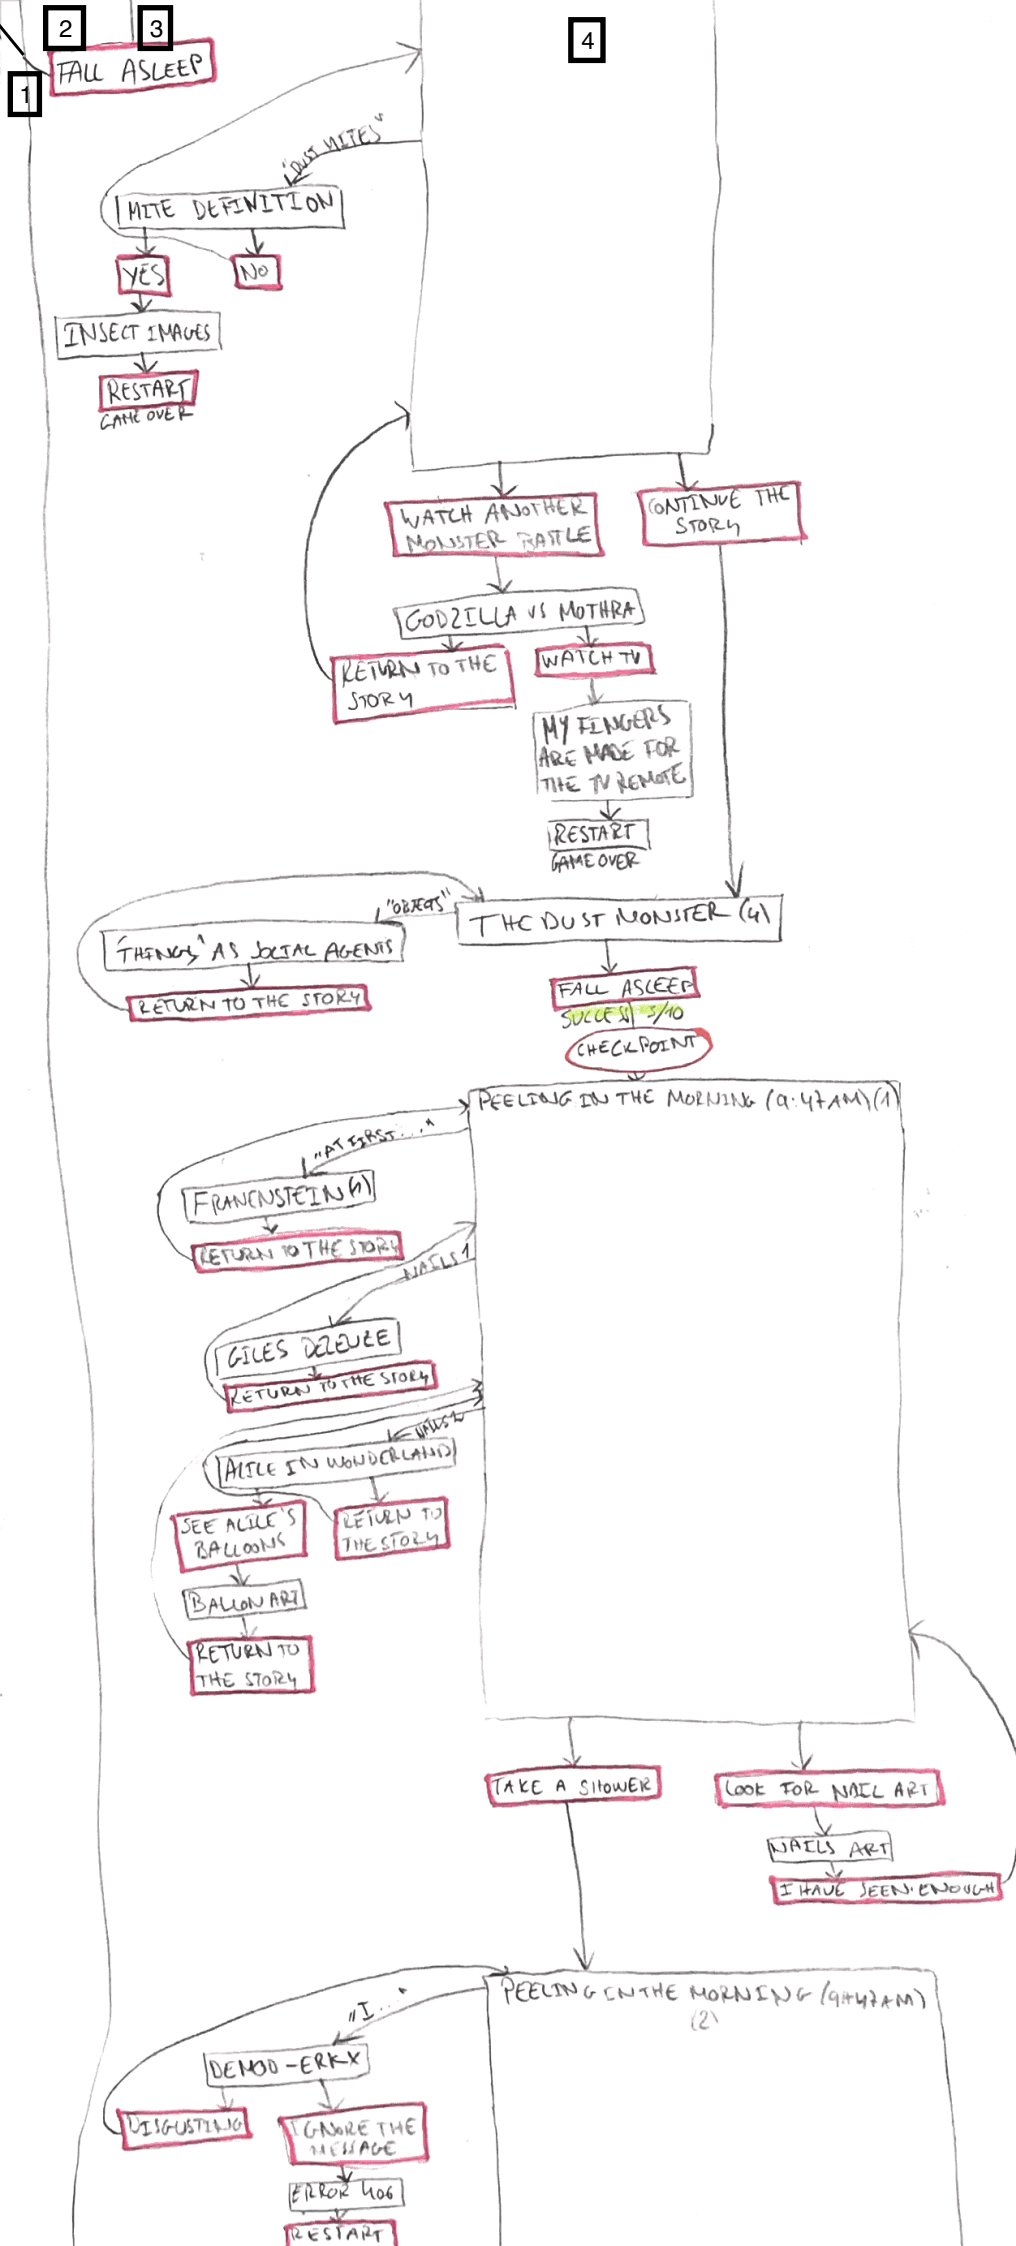 2
3
4
FALL ASLEEP
1
"DUST MITES"
MITE DEFINITION
YES
NO
INSECT IMAGES
RESTART
GAME OVER
WATCH ANOTHER
MONSTER BATTLE
CONTINUE THE
STORY
GODZILLA VS MOTHRA
RETURN TO THE
STORY
WATCH TV
MY FINGERS
ARE MADE FOR
THE TV REMOTE
RESTART
GAME OVER
"OBJECTS"
THE DUST MONSTER (4)
"THINGS" AS SOCIAL AGENTS
RETURN TO THE STORY
FALL ASLEEP
SUCCESS 3/10
CHECKPOINT
PEELING IN THE MORNING (9:47AM)(1)
"AT FIRST..."
FRANENSTEIN(1)
RETURN TO THE STORY
NAILS 1
GILES DELEUZE
RETURN TO THE STORY
NAILS 2
ALICE IN WONDERLAND
SEE ALICE'S
BALLOONS
RETURN TO
THE STORY
BALLON ART
RETURN TO
THE STORY
TAKE A SHOWER
LOOK FOR NAIL ART
NAILS ART
I HAVE SEEN ENOUGH
PEELING IN THE MORNING (9H47AM)
(2)
"I..."
DEMOD-ERKX
DISGUSTING
IGNORE THE
MESSAGE
ERROR 406
RESTART